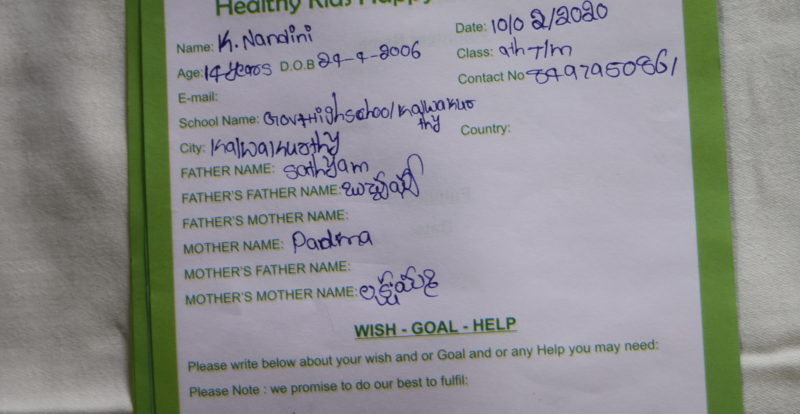 Healthy Kids Happy
Name: K. Nandini
Date: 10/02/2020
Age: 14 years D.O.B 29-4-2006
Class: 9th T/m
Contact No 8497950861
E-mail:
School Name: Govt High school Kalwakur
thy
City: Kalwakurthy
Country:
FATHER NAME: Sathyam
FATHER'S FATHER NAME:
FATHER'S MOTHER NAME:
MOTHER NAME: Padma
MOTHER'S FATHER NAME:
MOTHER'S MOTHER NAME:
WISH - GOAL - HELP
Please write below about your wish and or Goal and or any Help you may need:
Please Note : we promise to do our best to fulfil: